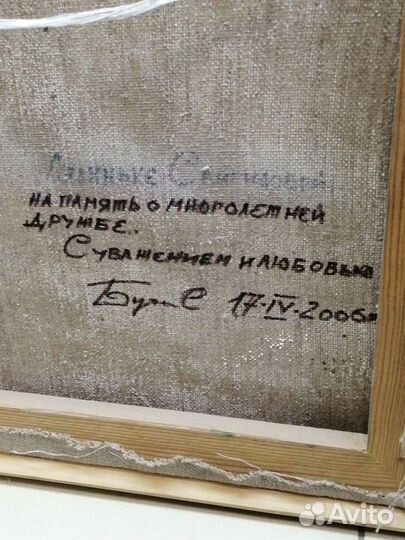 НА ПАМЯТЬ О МНОГОЛЕТНЕЙ
ДРУЖБЕ..
С УВАЖЕНИЕМ И ЛЮБОВЬЮ
17-IV-2006
Avito